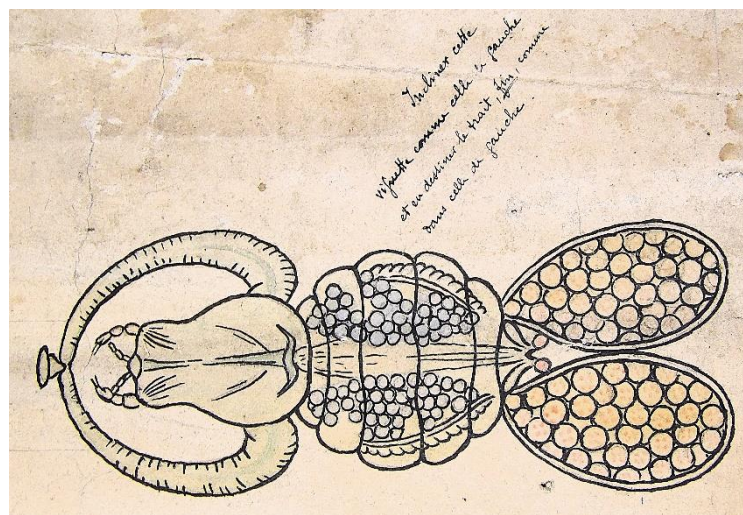 Incliner cette
vignette comme celle de gauche
et en dessiner le trait, fin, comme
dans celle de gauche.